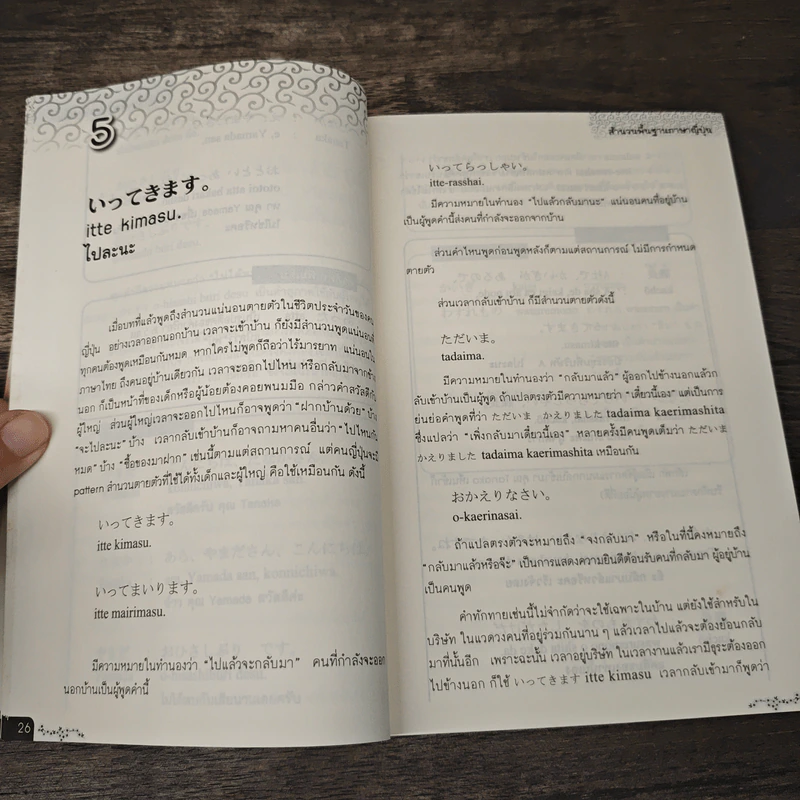 5
いってきます。
itte kimasu.
ไปละนะ
เมื่อบทที่แล้วพูดถึงสำนวนแน่นอนตายตัวในชีวิตประจำวันของคน
ญี่ปุ่น อย่างเวลาออกนอกบ้าน เวลาจะเข้าบ้าน ก็ยังมีสำนวนพูดแน่นอนที่
ทุกคนต้องพูดเหมือนกันหมด หากใครไม่พูดก็ถือว่าไร้มารยาท แน่นอนใน
ภาษาไทย ถึงคนอยู่บ้านเดียวกัน เวลาจะออกไปไหน หรือกลับมาจากข้าง
นอก ก็เป็นหน้าที่ของเด็กหรือผู้น้อยต้องคอยพนมมือ กล่าวคำสวัสดีกับ
ผู้ใหญ่ ส่วนผู้ใหญ่เวลาจะออกไปไหนก็อาจพูดว่า "ฝากบ้านด้วย" บ้าง
"จะไปละนะ" บ้าง เวลากลับเข้าบ้านก็อาจถามหาคนอื่นว่า "ไปไหนกัน
หมด" บ้าง "ซื้อของมาฝาก" เช่นนี้ตามแต่สถานการณ์ แต่คนญี่ปุ่นจะมี
pattern สำนวนตายตัวที่ใช้ได้ทั้งเด็กและผู้ใหญ่ คือใช้เหมือนกัน ดังนี้
いってきます。
itte kimasu.
いってまいります。
itte mairimasu.
มีความหมายในทำนองว่า "ไปแล้วจะกลับมา" คนที่กำลังจะออก
นอกบ้านเป็นผู้พูดคำนี้
26
สำนวนพื้นฐานภาษาญี่ปุ่น
いってらっしゃい。
itte-rasshai.
มีความหมายในทำนอง "ไปแล้วกลับมานะ" แน่นอนคนที่อยู่บ้าน
เป็นผู้พูดคำนี้ส่งคนที่กำลังจะออกจากบ้าน
ส่วนคำไหนพูดก่อนพูดหลังก็ตามแต่สถานการณ์ ไม่มีการกำหนด
ตายตัว
ส่วนเวลากลับเข้าบ้าน ก็มีสำนวนตายตัวดังนี้
ただいま。
tadaima.
มีความหมายในทำนองว่า "กลับมาแล้ว" ผู้ออกไปข้างนอกแล้วก
ลับเข้าบ้านเป็นผู้พูด ถ้าแปลตรงตัวมีความหมายว่า "เดี๋ยวนี้เอง" แต่เป็นการ
ย่นย่อคำพูดที่ว่า ただいま かえりました tadaima kaerimashita
ซึ่งแปลว่า "เพิ่งกลับมาเดี๋ยวนี้เอง" หลายครั้งมีคนพูดเต็มว่า ただいま
かえりました tadaima kaerimashita เหมือนกัน
おかえりなさい。
o-kaerinasai.
ถ้าแปลตรงตัวจะหมายถึง "จงกลับมา" หรือในที่นี้คงหมายถึง
"กลับมาแล้วหรือจ๊ะ" เป็นการแสดงความยินดีต้อนรับคนที่กลับมา ผู้อยู่บ้าน
เป็นคนพูด
คำทักทายเช่นนี้ไม่จำกัดว่าจะใช้เฉพาะในบ้าน แต่ยังใช้สำหรับใน
บริษัท ในแวดวงคนที่อยู่ร่วมกันนาน ๆ แล้วเวลาไปแล้วจะต้องย้อนกลับ
มาที่นั้นอีก เพราะฉะนั้น เวลาอยู่บริษัท ในเวลางานแล้วเรามีธุระต้องออก
ไปข้างนอก ก็ใช้ いってきます itte kimasu เวลากลับเข้ามาก็พูดว่า